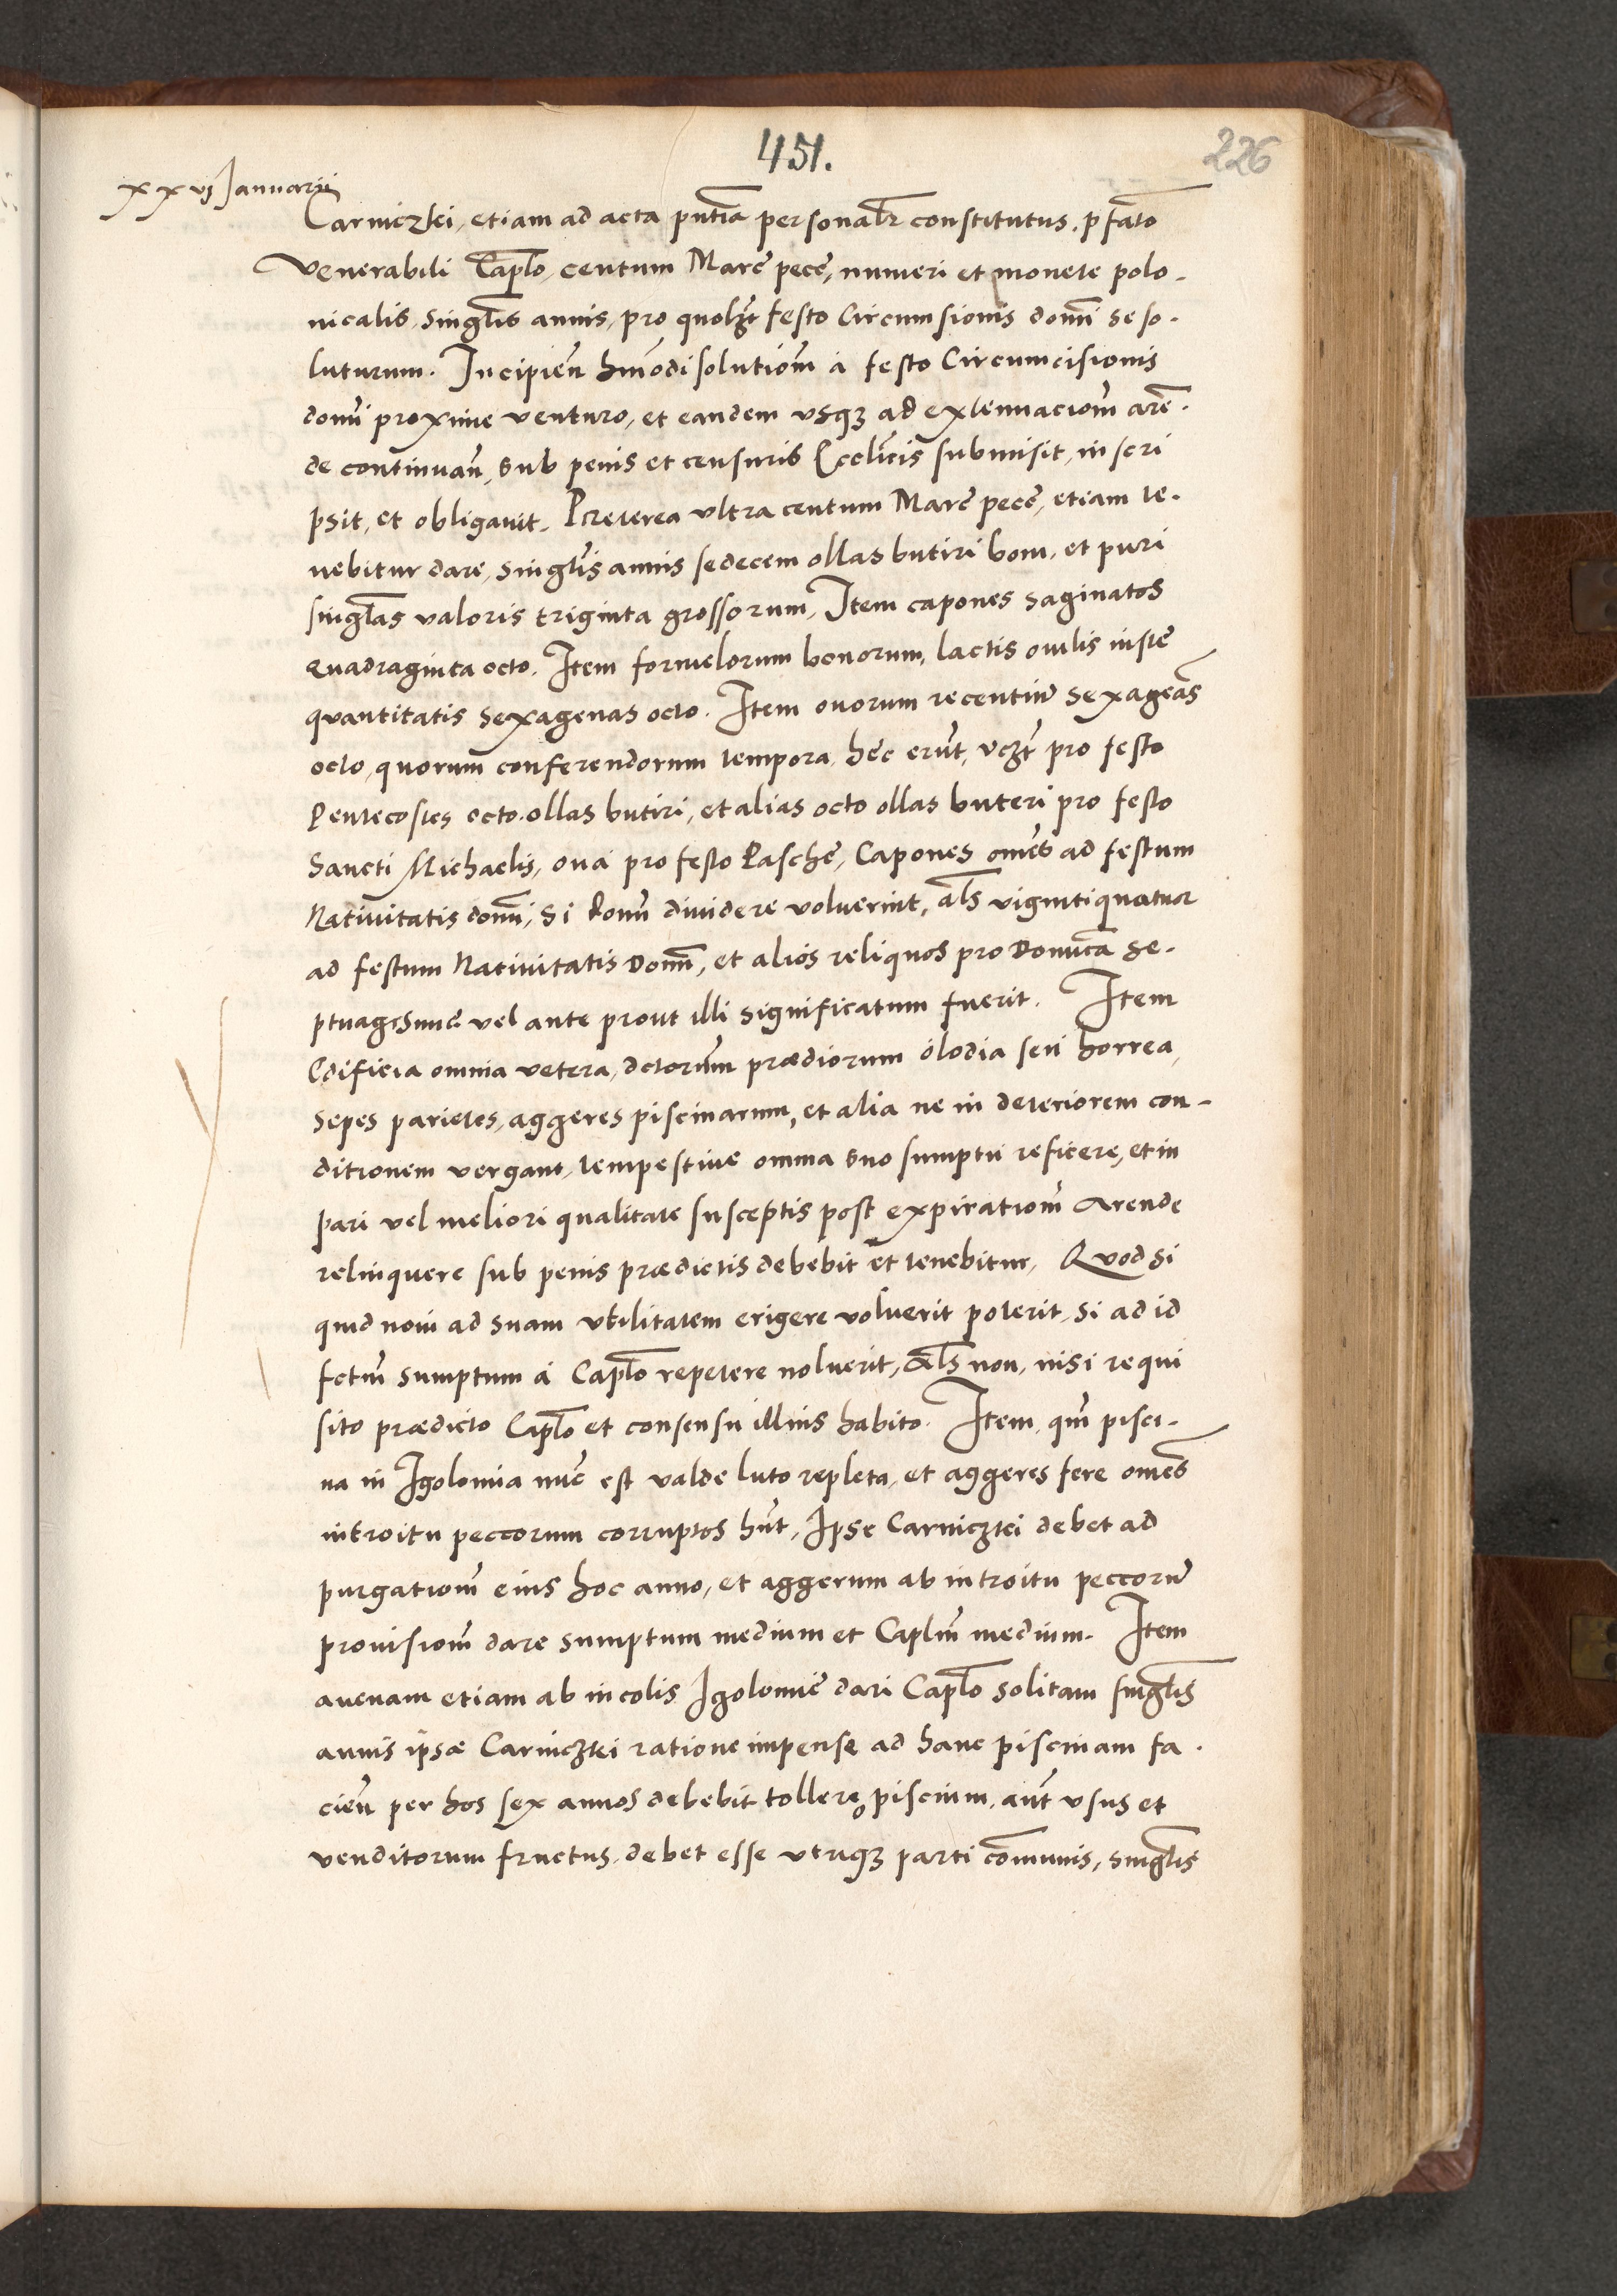 451.
226
xxvj Januarii
Carniczkei, etiam ad acta pntia personalr constitutus, pfato
Venerabili Caplo, centum Marc pece, numeri et monete polo-
nicalis, singlis annis, pro quolzt festo Circumsionis domi se so-
luturum. Incipien hmodi solutiom a festo Circumcisionis
domi proxime venturo, et eandem usqz ad extenuaciom aren-
de continuan, sub penis et censuris Ecclicis submisit, inscri
psit, et obligauit. Preterea ultra centum Marc pece, etiam te-
nebitur dare, singlis annis sedecem ollas butiri boni, et puri
singlas valoris triginta grossorum, Item capones saginatos
Quadraginta octo. Item formelorum bonorum, lactis ouilis iuste
quantitatis sexagenas octo. Item ouorum recentium sexageas
octo, quorum conferendorum tempora, hec erunt, vczt pro festo
Pentecostes octo ollas butiri, et alias octo ollas buteri pro festo
Sancti Michaelis, oua pro festo Pasche, Capones omes ad festum
Natiuitatis domi, si domi diuidere voluerint, als vigintiquatuor
ad festum Natiuitatis Domi, et alios reliquos pro Domica Se-
ptuagesime vel ante prout illi significatum fuerit. Item
Edificia omnia vetera, dctorum prædiorum olodia seu horrea,
sepes parietes, aggeres piscinarum, et alia ne in deteriorem con-
ditionem vergant, tempestiue omnia suo sumptu reficere, et in
pari vel meliori qualitate susceptis post expiratiom Arende
relinquere sub penis prædictis debebit et tenebitur, Quod si
quid noui ad suam utilitatem erigere voluerit poterit, si ad id
fctm sumptum a Caplo repetere noluerit, als non, nisi requi
sito prædicto Caplo et consensu illius habito. Item, qm pisci-
na in Igolomia nunc est valde luto repleta, et aggeres fere omes
introitu peccorum corruptos hnt, Ipse Carniczkei debet ad
purgatiom eius hoc anno, et aggerum ab introitu peccorum
prouisiom dare sumptum medium et Caplm medium. Item
auenam etiam ab incolis Igolomie dari Caplo solitam singlis
annis ipse Carniczkei ratione impense ad hanc piscinam fa-
cien per hos sex annos debebit tollere, piscium, aut usus et
venditorum fructus, debet esse utriqz parti communis, singlis